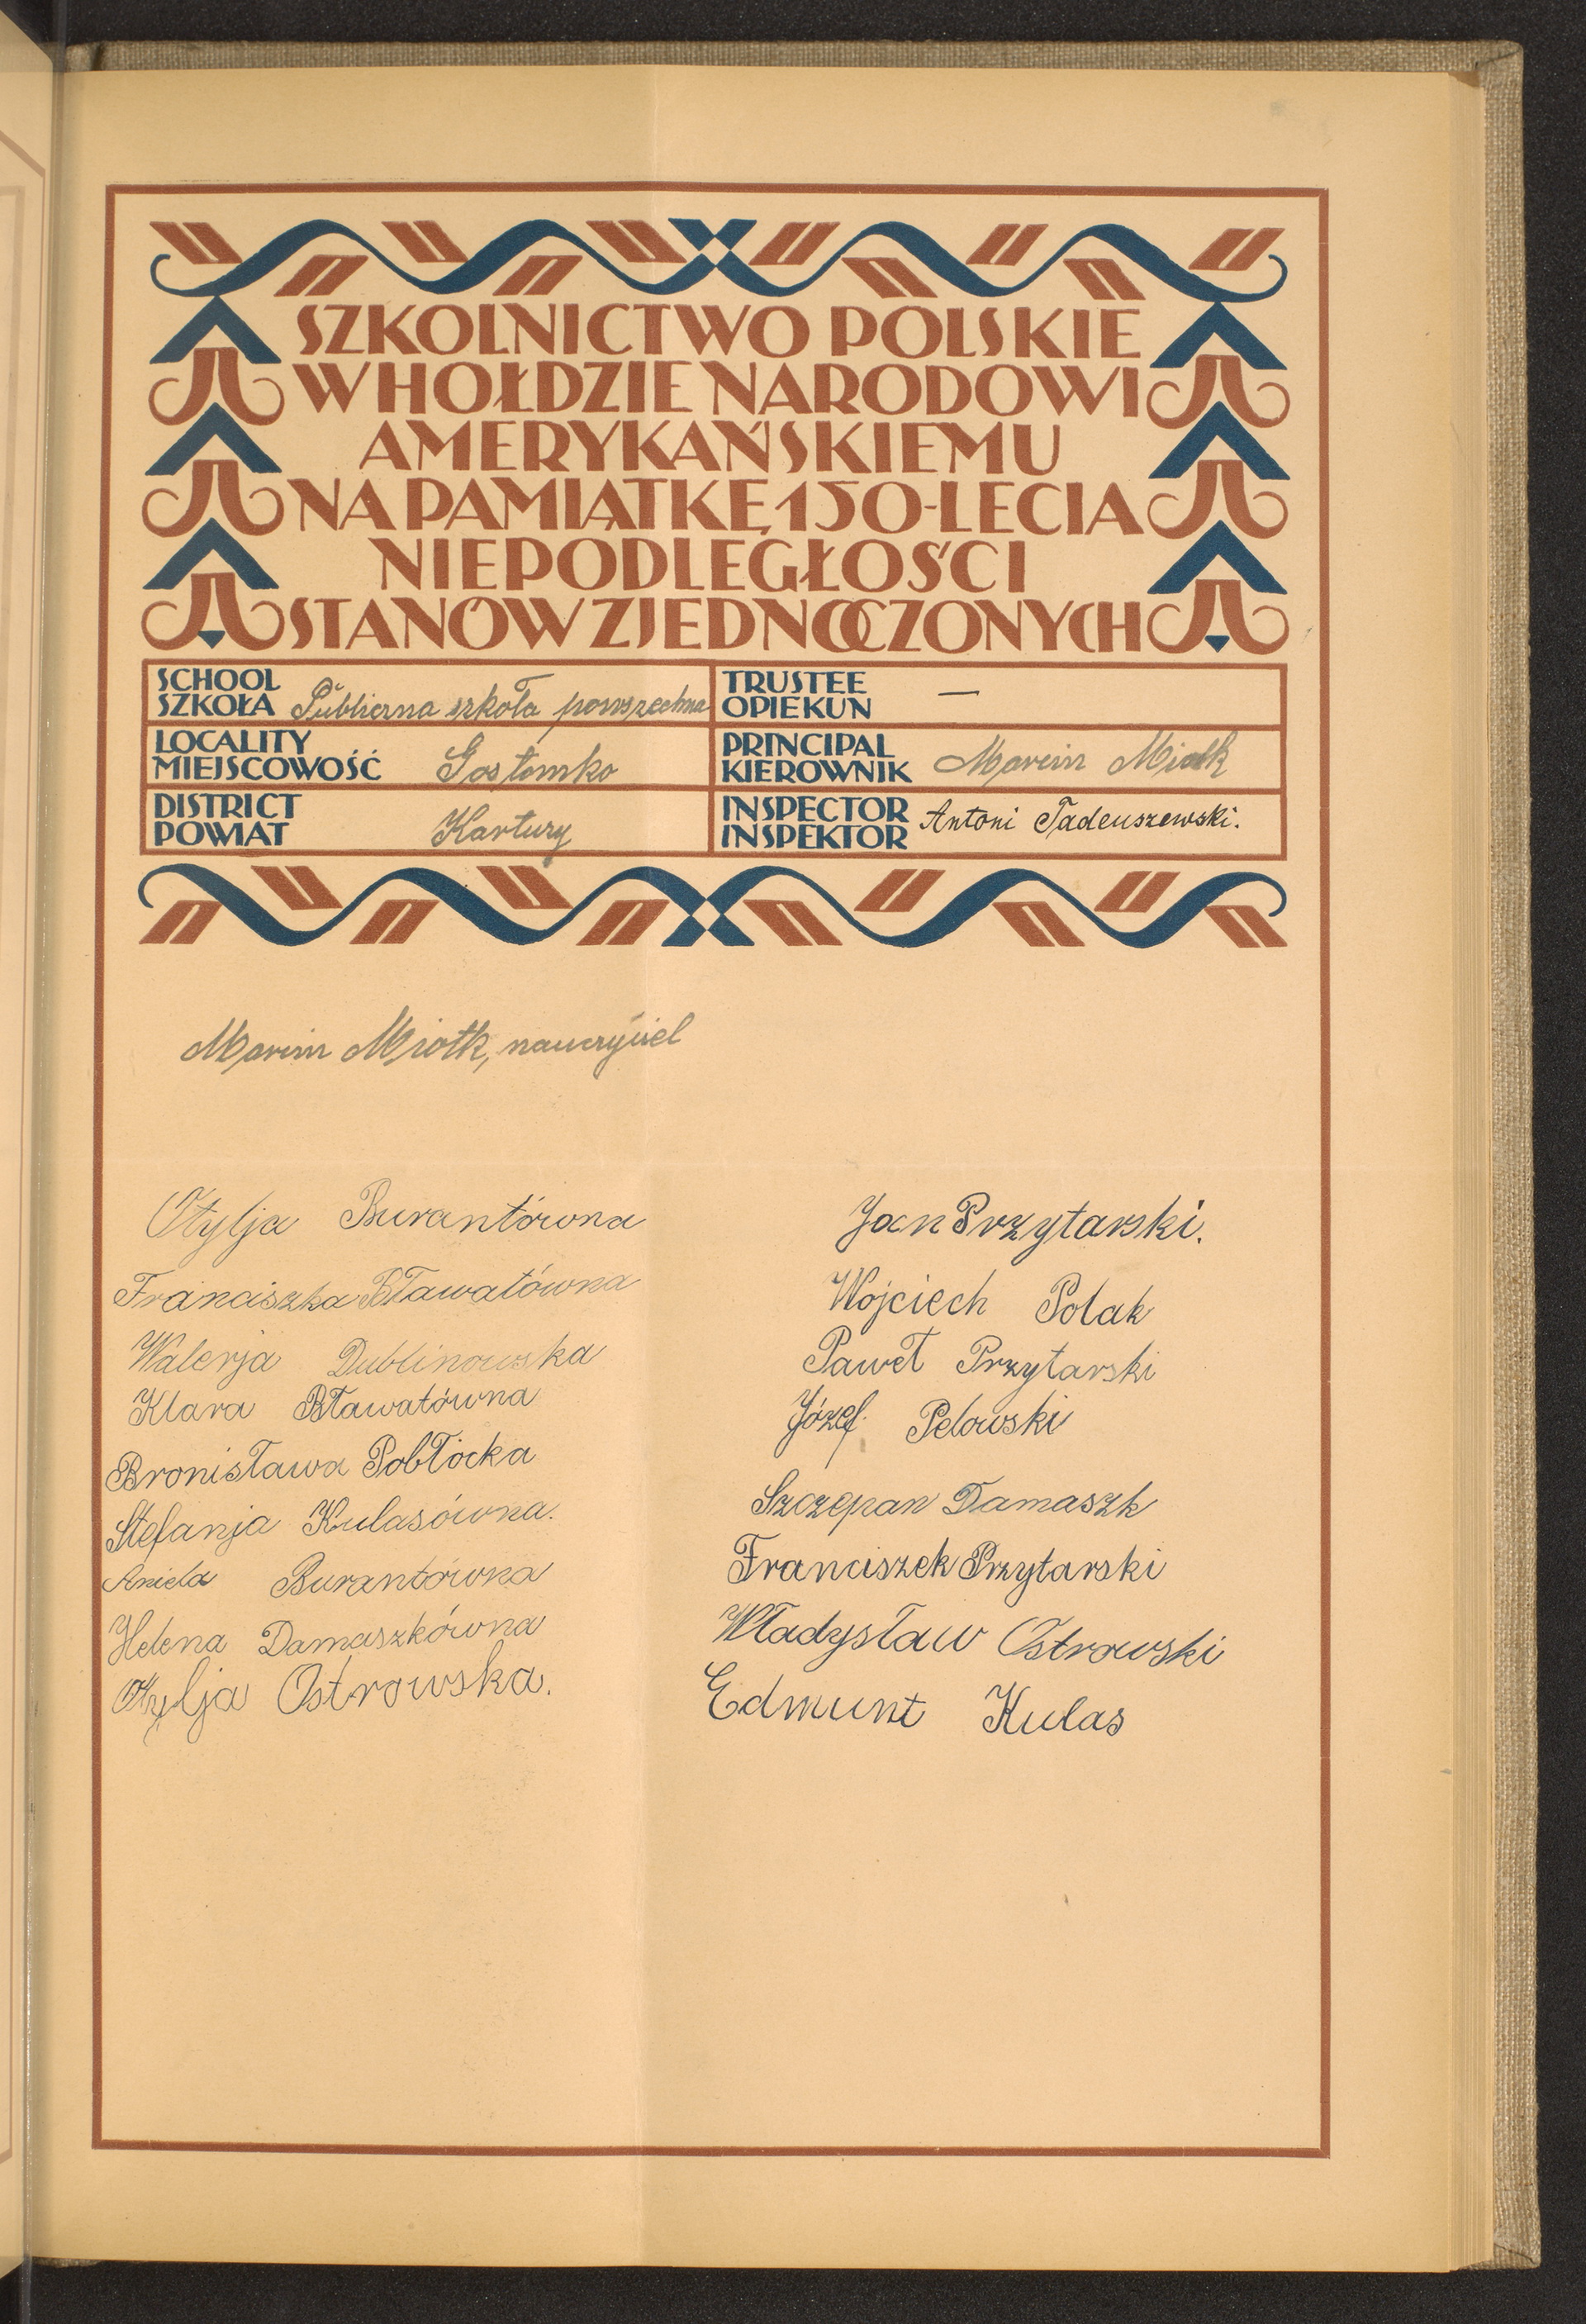 SZKOLNICTWO POLSKIE
W HOŁDZIE NARODOWI
AMERYKAŃSKIEMU
NA PAMIĄTKĘ 150-LECIA
NIEPODLEGŁOŚCI
STANÓW ZJEDNOCZONYCH
SCHOOL
SZKOŁA Publiczna szkoła powszechna
TRUSTEE
OPIEKUN —
LOCALITY
MIEJSCOWOŚĆ Gostomko
PRINCIPAL
KIEROWNIK Marcin Miotk
DISTRICT
POWIAT Kartuzy
INSPECTOR
INSPEKTOR Antoni Tadeuszewski.
Marcin Miotk, nauczyciel
Otylja Burantówna
Franciszka Bławatówna
Walerja Dublinowska
Klara Bławatówna
Bronisława Pobłocka
Stefanja Kulasówna.
Aniela Burantówna
Helena Damaszkówna
Otylja Ostrowska.
Jan Przytarski.
Wojciech Polak
Paweł Przytarski
Józef Pelowski
Szczepan Damaszk
Franciszek Przytarski
Władysław Ostrowski
Edmunt Kulas